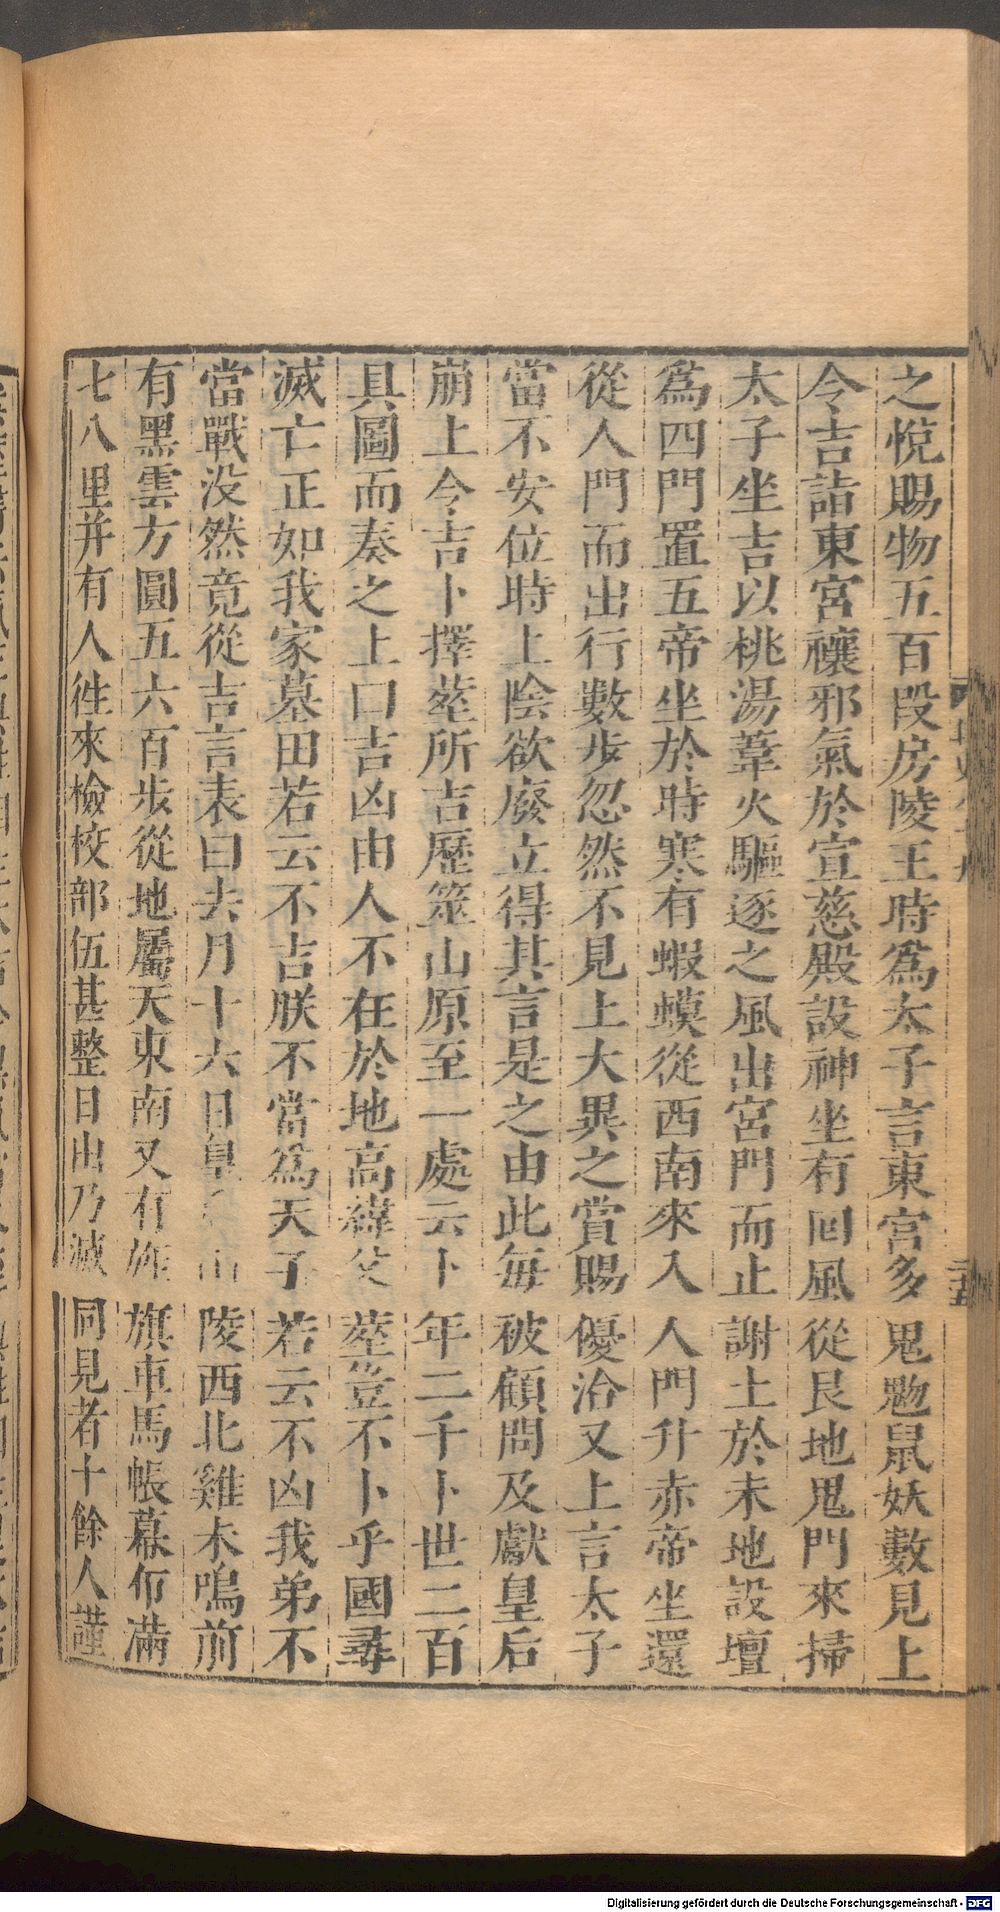 之悅賜物五百段房陵王時爲太子言東宮多鬼魅鼠妖數見上
令吉詣東宮禳邪氣於宣慈殿設神坐有回風從艮地鬼門來掃
太子坐吉以桃湯葦火驅逐之風出宮門而止謝土於未地設壇
爲四門置五帝坐於時寒有蝦蟆從西南來入人門升赤帝坐還
從人門而出行數步忽然不見上大異之賞賜優洽又上言太子
當不安位時上陰欲廢立得其言是之由此每被顧問及獻皇后
崩上令吉卜擇塟所吉歷筮山原至一處云卜年二千卜世二百
具圖而奏之上曰吉凶由人不在於地高緯父塟豈不卜乎國尋
滅亡正如我家墓田若云不吉朕不當爲天子若云不凶我弟不
當戰没然竟從吉言表曰去月十六日皇 山陵西北雞未鳴前
有黑雲方圓五六百步從地屬天東南又有旌旗車馬帳幕布滿
七八里并有人徃來檢校部伍甚整日出乃滅同見者十餘人謹
Digitalisierung gefördert durch die Deutsche Forschungsgemeinschaft - DFG